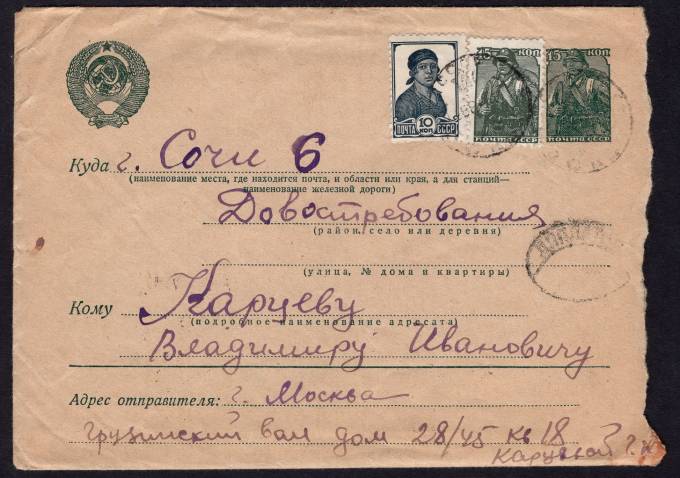 15 КОП 15 КОП
10 КОП
ПОЧТА СССР ПОЧТА СССР ПОЧТА СССР
Куда г. Сочи 6
(наименование места, где находится почта, и области или края, а для станций—
наименование железной дороги)
Довостребования
(район, село или деревня)
(улица, № дома и квартиры)
Кому Карцеву
(подробное наименование адресата)
Владимиру Ивановичу
Адрес отправителя: г. Москва
Грузинский вал дом 28/45 кв 18
Карцевой